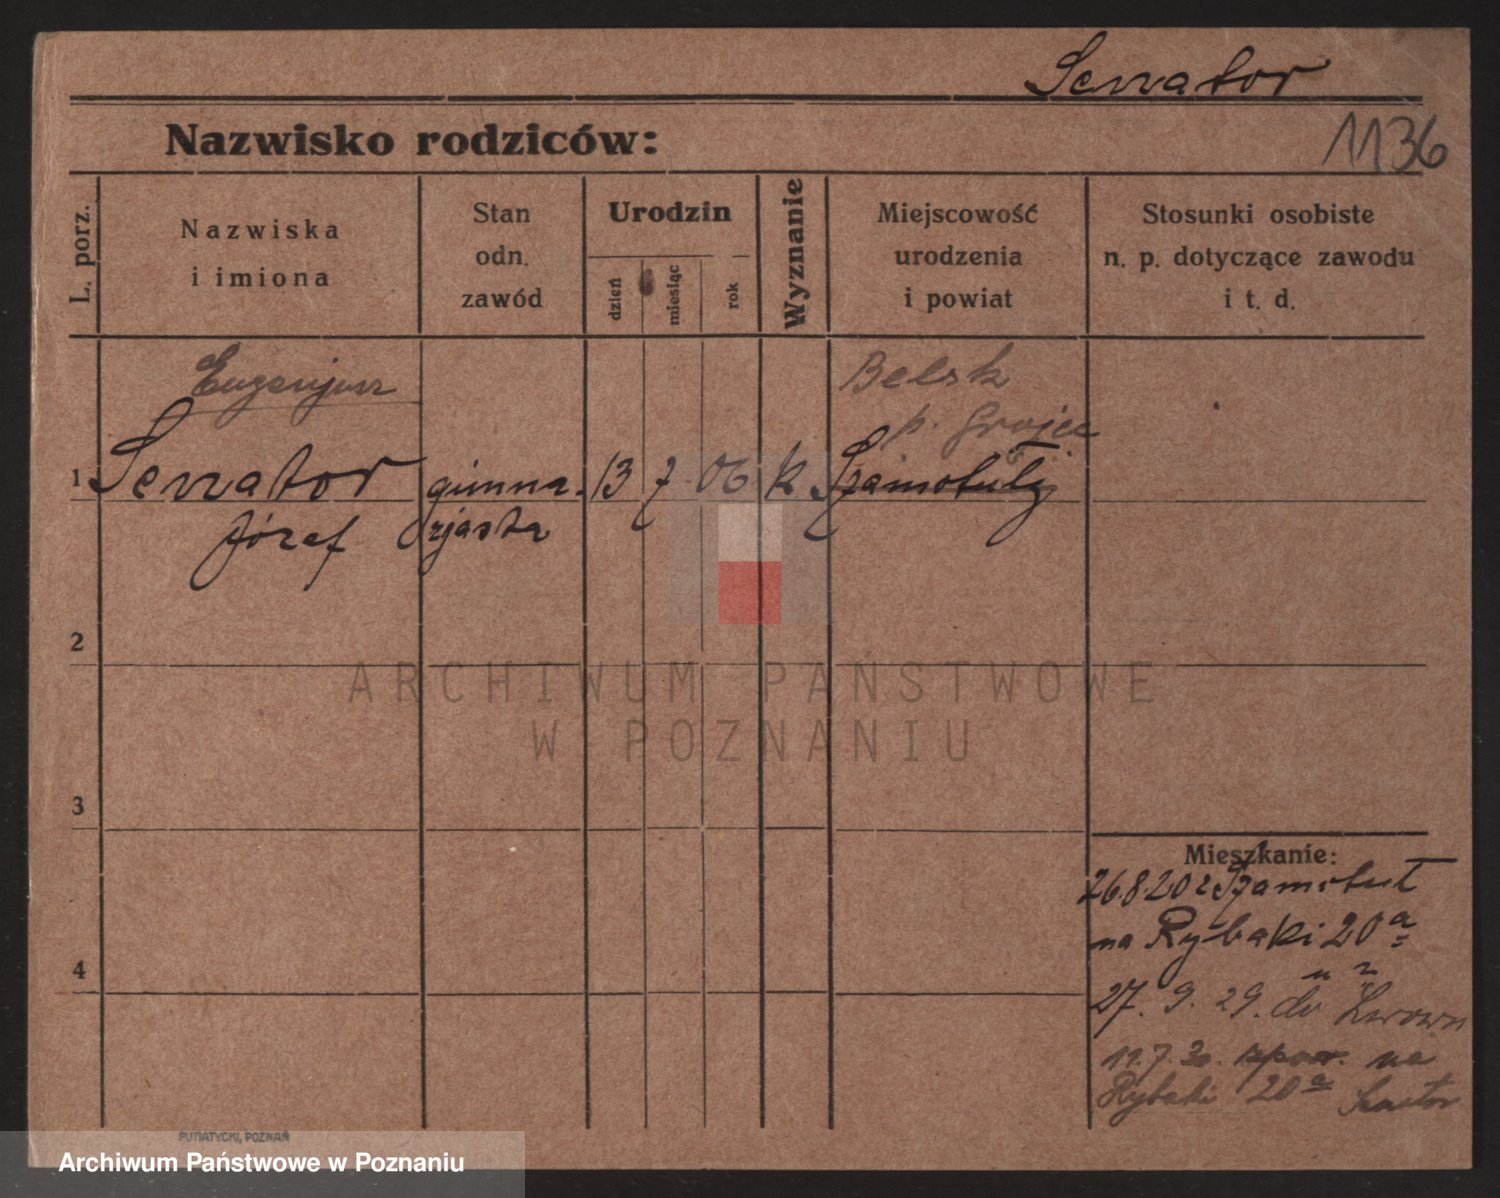 Senator
Nazwisko rodziców:
1136
L. porz.
Nazwiska
i imiona
Stan
odn.
zawód
Urodzin
dzień
miesiąc
rok
Wyznanie
Miejscowość
urodzenia
i powiat
Stosunki osobiste
n. p. dotyczące zawodu
i t. d.
Eugenjusz
Belsk
p. Grójec
1 Senator gimna- 13 7 06 k Szamotuły
Józef zjasta
2
3
4
Mieszkanie:
26.8.20 z Szamotuł
na Rybaki 20 a
27. 9. 29. do Lwowa
11.7.30. na
Rybaki 20 a Senator
PUTIATYCKI, POZNAŃ
ARCHIWUM PAŃSTWOWE
W POZNANIU
Archiwum Państwowe w Poznaniu